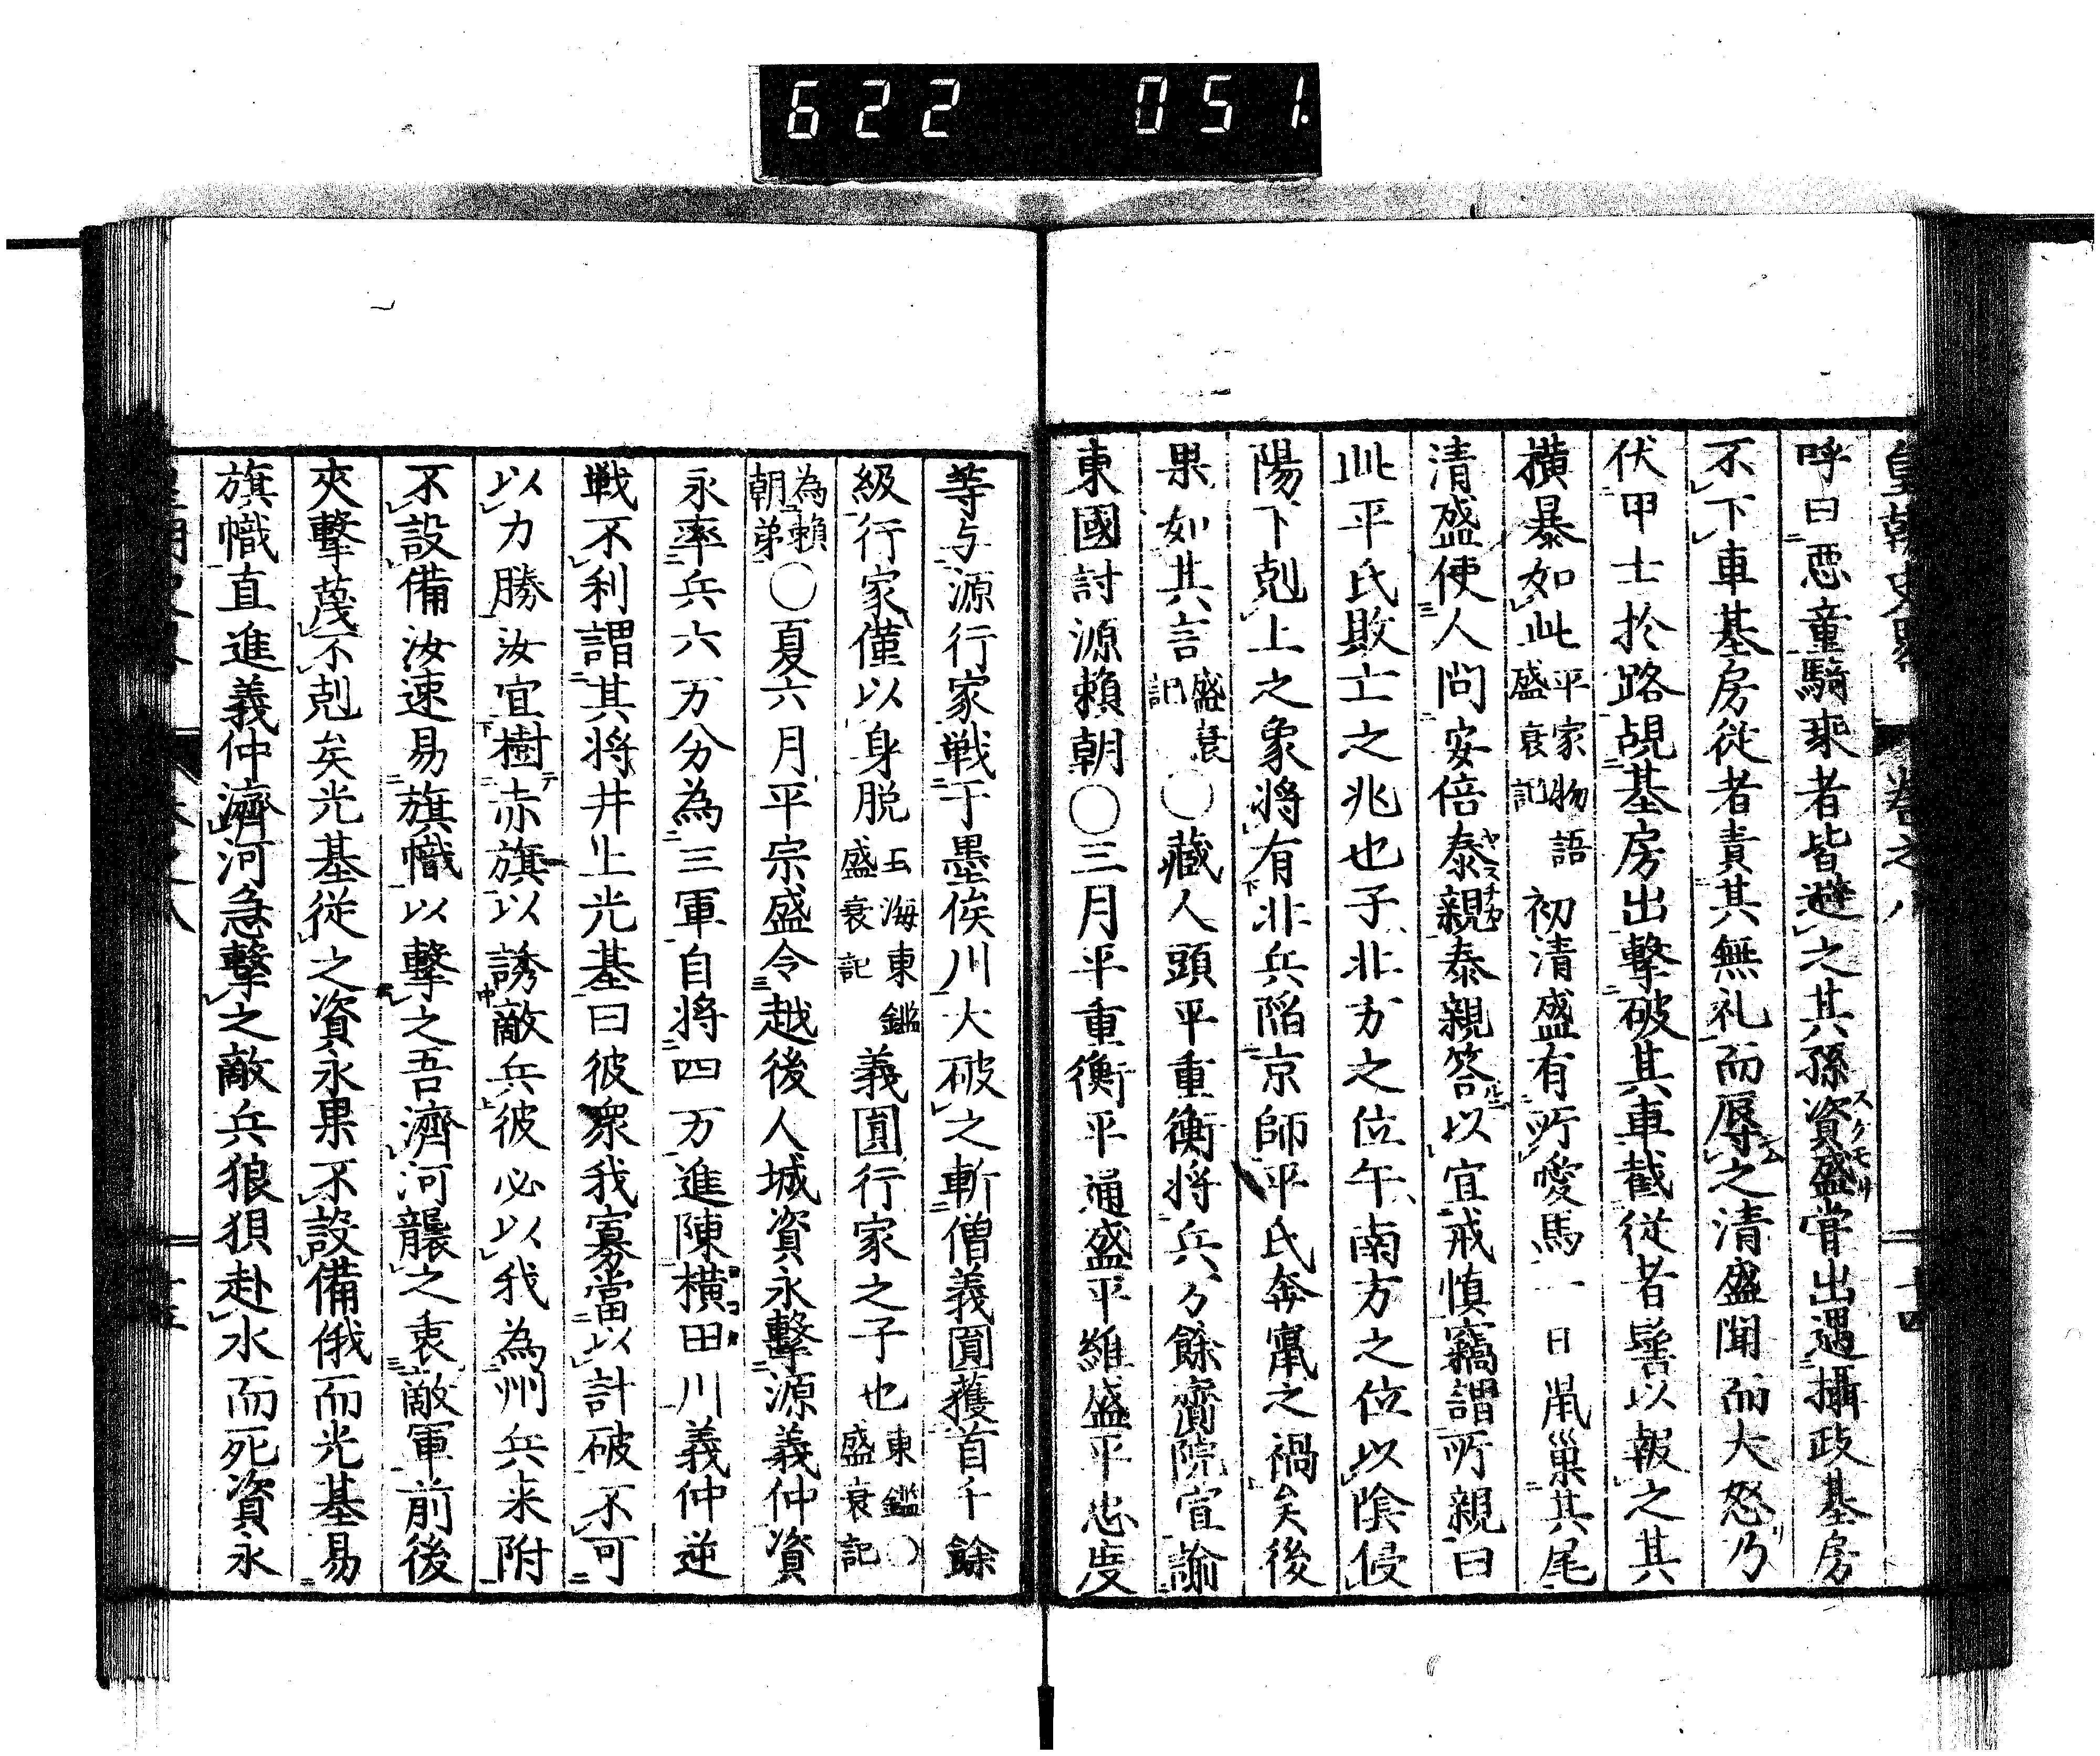 622 051
皇朝史畧 卷之八 十四
呼曰惡童騎來者皆避之其孫資盛嘗出遇攝政基房
不下車基房従者責其無礼而辱之清盛聞而大怒乃
伏甲士於路覘基房出擊破其車截従者髻以報之其
横暴如此平家物語盛衰記初清盛有所愛馬一日鼠巢其尾
清盛使人問安倍泰親泰親答以宜戒慎竊謂所親曰
此平氏敗亡之兆也子北方之位午南方之位以陰侵
陽下剋上之象将有北兵陷京師平氏奔竄之禍矣後
果如其言盛衰記○藏人頭平重衡将兵万餘齎院宣諭
東國討源賴朝○三月平重衡平通盛平維盛平忠度
等与源行家戦于墨俣川大破之斬僧義圓獲首千餘
級行家僅以身脱玉海東鑑盛衰記義圓行家之子也東鑑盛衰記○
為賴朝弟○夏六月平宗盛令越後人城資永擊源義仲資
永率兵六万分為三軍自将四万進陳横田川義仲逆
戦不利謂其将井上光基曰彼衆我寡當以計破不可
以力勝汝宜樹赤旗以誘敵兵彼必以我為州兵来附
不設備汝速易旗幟以擊之吾濟河襲之衷敵軍前後
夾擊蔑不剋矣光基従之資永果不設備俄而光基易
旗幟直進義仲濟河急擊之敵兵狼狽赴水而死資永